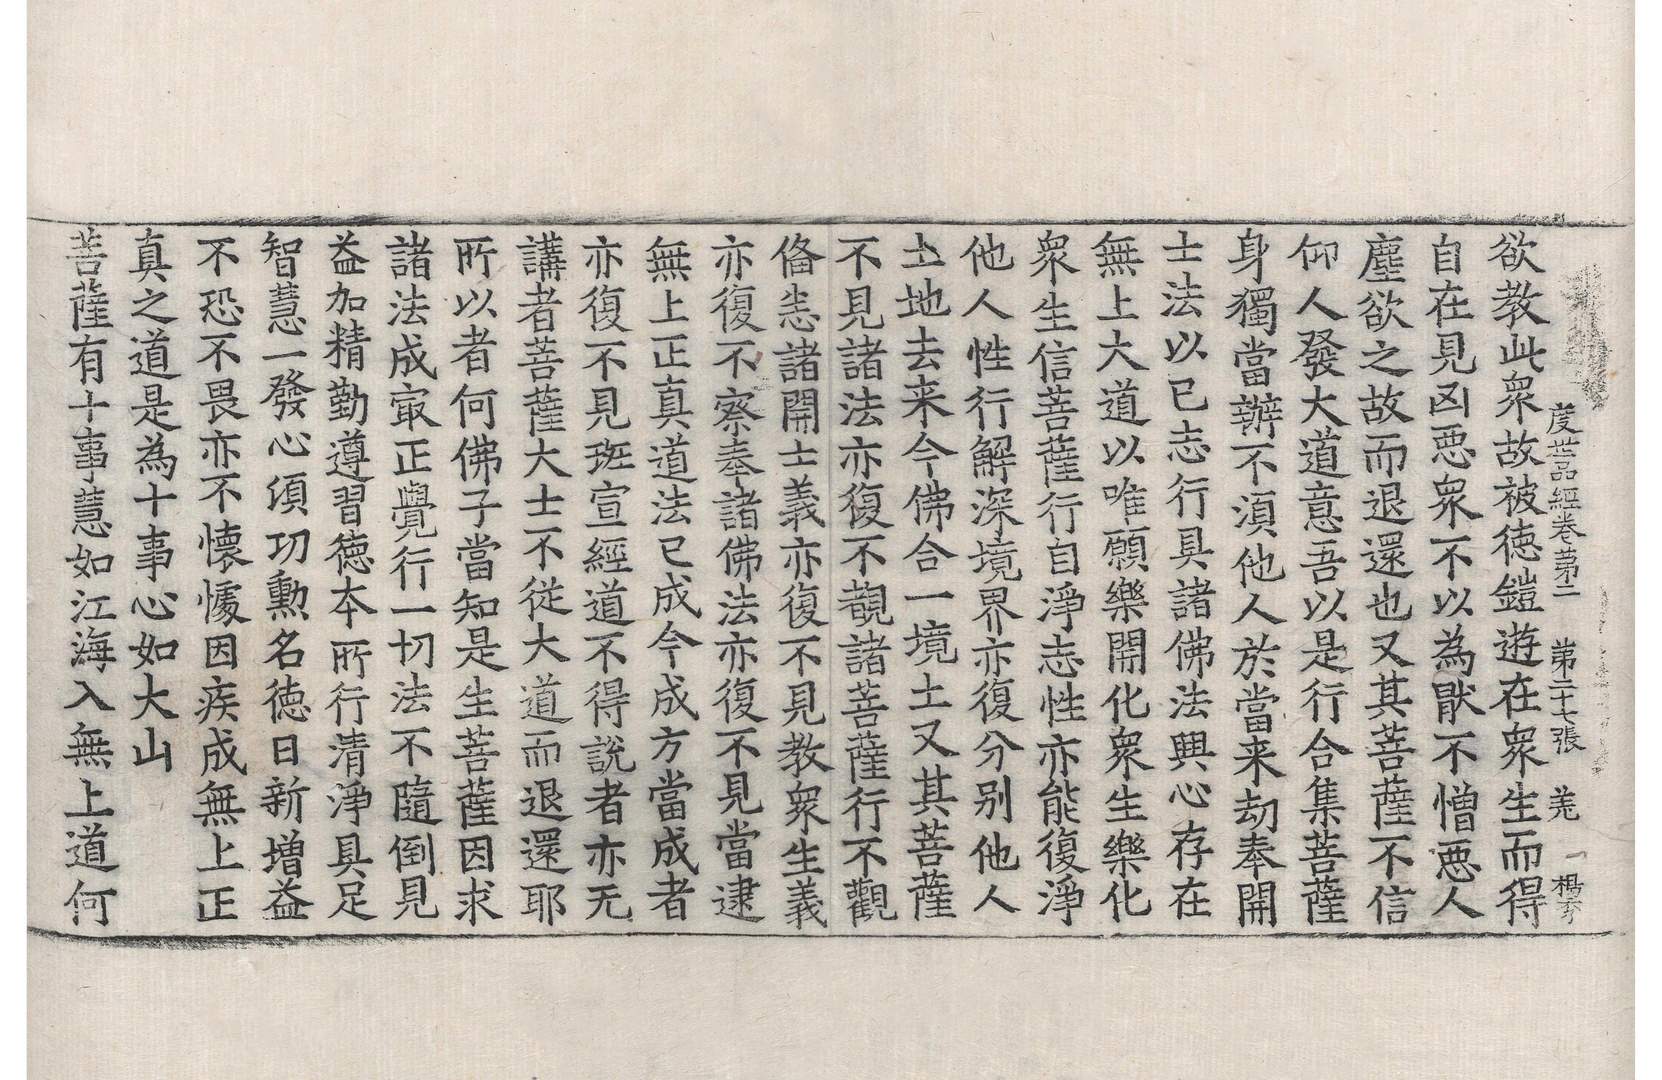 度世品經卷第二　第二十七張　羌　楊
欲教此衆故被德鎧遊在衆生而得
自在見凶惡衆不以為猒不憎惡人
塵欲之故而退還也又其菩薩不信
仰人發大道意吾以是行合集菩薩
身獨當辦不湏他人於當来劫奉開
士法以已志行具諸佛法興心存在
無上大道以唯願樂開化衆生樂化
衆生信菩薩行自淨志性亦能復淨
他人性行解深境界亦復分别他人
土地去来今佛合一境土又其菩薩
不見諸法亦復不覩諸菩薩行不觀
俻恚諸開士義亦復不見教衆生義
亦復不察奉諸佛法亦復不見當逮
無上正真道法已成今成方當成者
亦復不見班宣經道不得說者亦无
講者菩薩大士不從大道而退還耶
所以者何佛子當知是生菩薩因求
諸法成㝡正覺行一切法不隨倒見
益加精勤遵習德本所行清淨具足
智慧一發心須功勲名德日新增益
不恐不畏亦不懷懅因疾成無上正
真之道是為十事心如大山
菩薩有十事慧如江海入無上道何